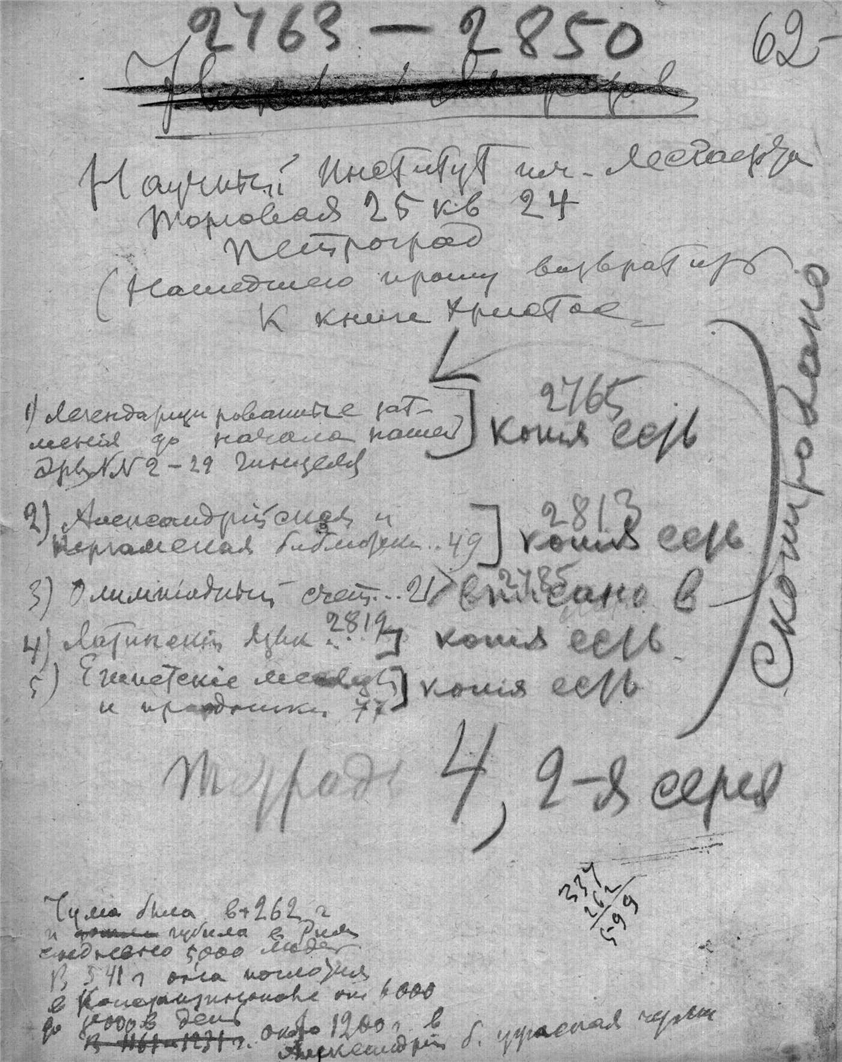 2763 — 2850
62-
Научный Институт им. Лесгафта
Торговая 25 кв 24
Петроград
(Нашедшего прошу возвратить
К книге Христос
1) Легендаризированные зат-
менія до начала нашей
Эры №№ 2-29 Гинцеля
2765
копія есть
2) Александрійская и
Пергамская библіотеки..49
2813
копія есть
3) Олимпіадный счет...21
2785
вписано в
4) Латинскій язык
2819
копія есть
5) Египетскіе месяцы
и праздники 77
копія есть
Скопировано
Тетрадь 4, 2-я серия
337
262
599
Чума была в +262 г
и губила в Риме
ежедневно 5000 людей
В 541 г она
в Константинополе от 5000
до в день
В 1161-1231 г. около 1200 г. в
Александріи б. ужасная чума